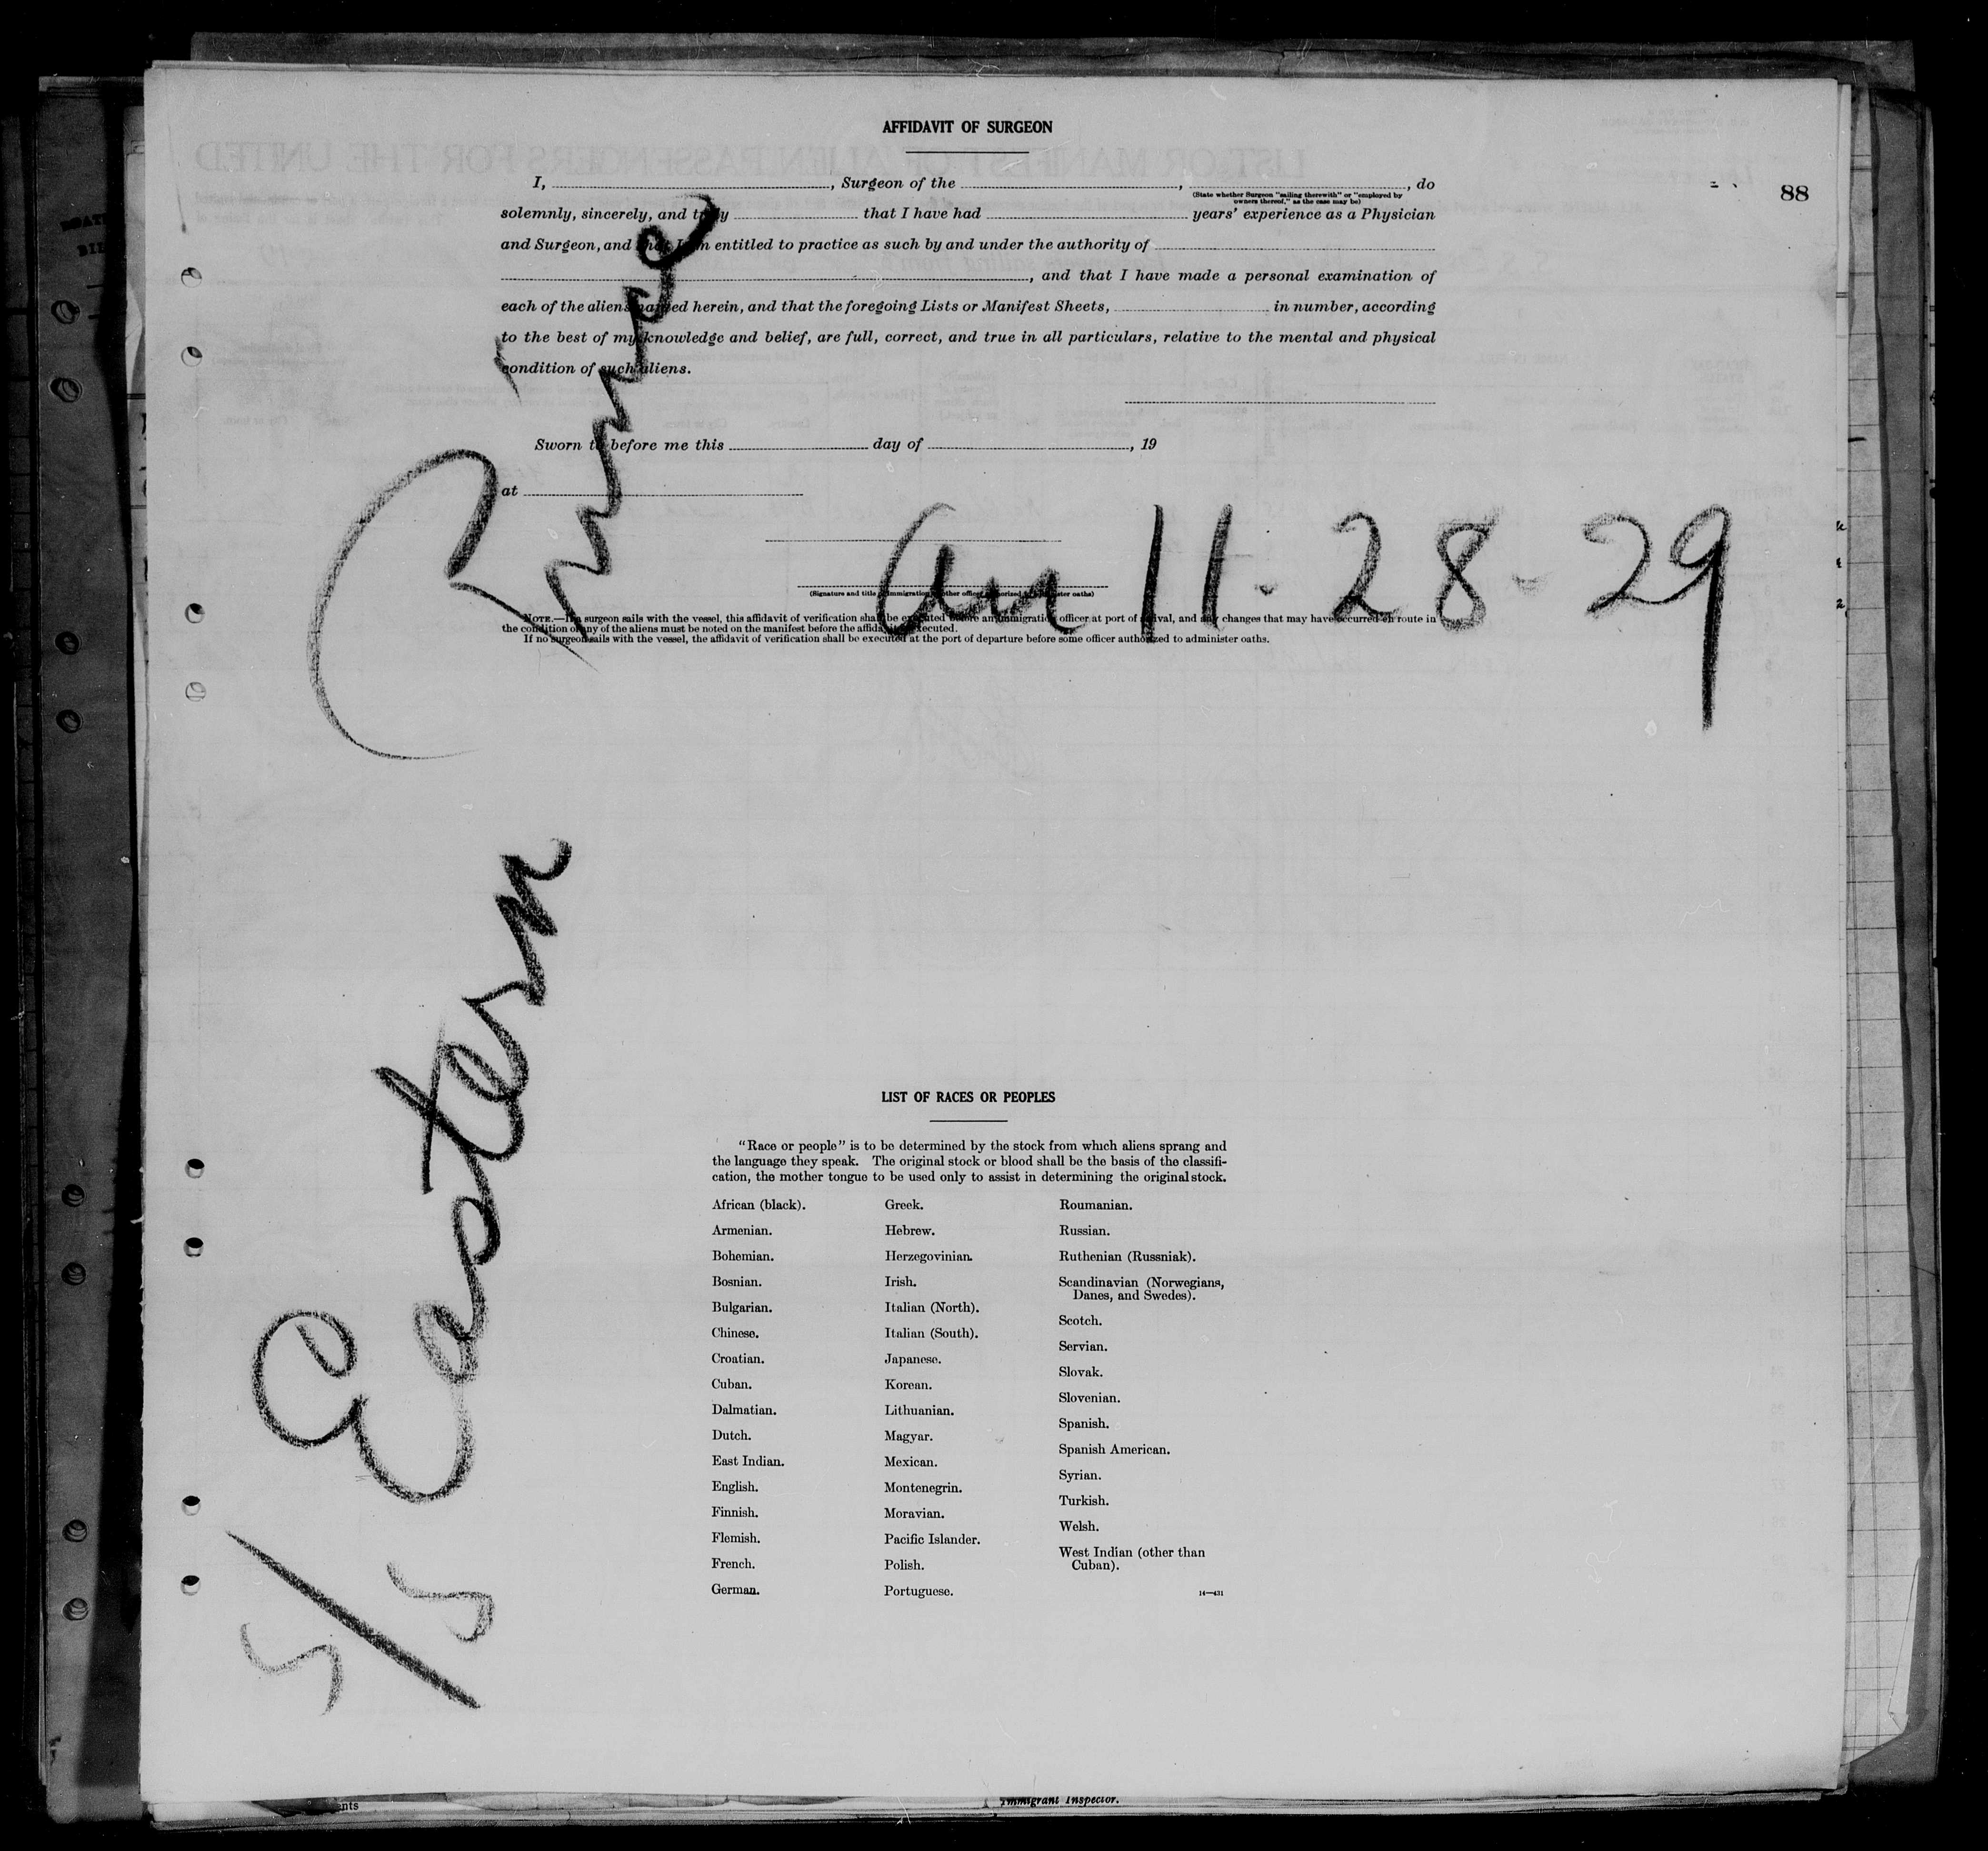 AFFIDAVIT OF SURGEON
88
I, , Surgeon of the , , do
(State whether Surgeon "sailing therewith" or "employed by
owners thereof," as the case may be)
solemnly, sincerely, and truly that I have had years' experience as a Physician
and Surgeon, and that I am entitled to practice as such by and under the authority of
, and that I have made a personal examination of
each of the aliens named herein, and that the foregoing Lists or Manifest Sheets, in number, according
to the best of my knowledge and belief, are full, correct, and true in all particulars, relative to the mental and physical
condition of such aliens.
Sworn to before me this day of , 19
at
Arr 11-28-29
(Signature and title of immigration or other officer authorized to administer oaths)
NOTE.—If a surgeon sails with the vessel, this affidavit of verification shall be executed before an immigration officer at port of arrival, and any changes that may have occurred en route in
the condition of any of the aliens must be noted on the manifest before the affidavit is executed.
If no surgeon sails with the vessel, the affidavit of verification shall be executed at the port of departure before some officer authorized to administer oaths.
S/S Eastern Prince
LIST OF RACES OR PEOPLES
"Race or people" is to be determined by the stock from which aliens sprang and
the language they speak. The original stock or blood shall be the basis of the classifi-
cation, the mother tongue to be used only to assist in determining the original stock.
African (black).
Armenian.
Bohemian.
Bosnian.
Bulgarian.
Chinese.
Croatian.
Cuban.
Dalmatian.
Dutch.
East Indian.
English.
Finnish.
Flemish.
French.
German.
Greek.
Hebrew.
Herzegovinian.
Irish.
Italian (North).
Italian (South).
Japanese.
Korean.
Lithuanian.
Magyar.
Mexican.
Montenegrin.
Moravian.
Pacific Islander.
Polish.
Portuguese.
Roumanian.
Russian.
Ruthenian (Russniak).
Scandinavian (Norwegians,
Danes, and Swedes).
Scotch.
Servian.
Slovak.
Slovenian.
Spanish.
Spanish American.
Syrian.
Turkish.
Welsh.
West Indian (other than
Cuban).
14—431
Immigrant Inspector.